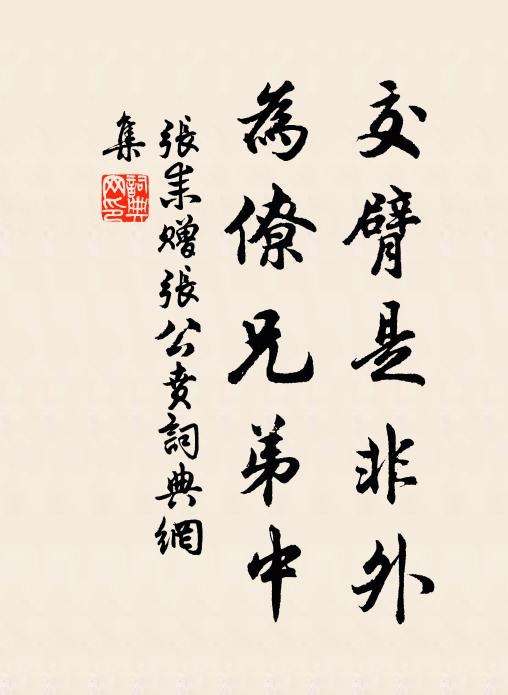 交臂是非外
為僚兄弟中
張耒贈張公賁詞典網
集
詞典
網印